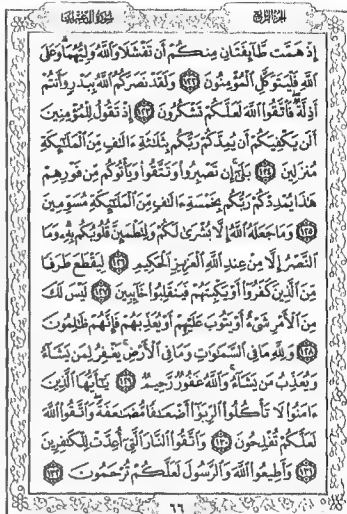 الجزء الرابع
إِذْ هَمَّت طَّآئِفَتَانِ مِنكُمْ أَن تَفْشَلَا وَٱللَّهُ وَلِيُّهُمَا ۗ وَعَلَى
ٱللَّهِ فَلْيَتَوَكَّلِ ٱلْمُؤْمِنُونَ ١٢٢ وَلَقَدْ نَصَرَكُمُ ٱللَّهُ بِبَدْرٍ وَأَنتُمْ
أَذِلَّةٌ ۖ فَٱتَّقُوا۟ ٱللَّهَ لَعَلَّكُمْ تَشْكُرُونَ ١٢٣ إِذْ تَقُولُ لِلْمُؤْمِنِينَ
أَلَن يَكْفِيَكُمْ أَن يُمِدَّكُمْ رَبُّكُم بِثَلَـٰثَةِ ءَالَـٰفٍ مِّنَ ٱلْمَلَـٰٓئِكَةِ
مُنزَلِينَ ١٢٤ بَلَىٰٓ ۚ إِن تَصْبِرُوا۟ وَتَتَّقُوا۟ وَيَأْتُوكُم مِّن فَوْرِهِمْ
هَـٰذَا يُمْدِدْكُمْ رَبُّكُم بِخَمْسَةِ ءَالَـٰفٍ مِّنَ ٱلْمَلَـٰٓئِكَةِ مُسَوِّمِينَ
١٢٥ وَمَا جَعَلَهُ ٱللَّهُ إِلَّا بُشْرَىٰ لَكُمْ وَلِتَطْمَئِنَّ قُلُوبُكُم بِهِۦ ۗ وَمَا
ٱلنَّصْرُ إِلَّا مِنْ عِندِ ٱللَّهِ ٱلْعَزِيزِ ٱلْحَكِيمِ ١٢٦ لِيَقْطَعَ طَرَفًا
مِّنَ ٱلَّذِينَ كَفَرُوٓا۟ أَوْ يَكْبِتَهُمْ فَيَنقَلِبُوا۟ خَآئِبِينَ ١٢٧ لَيْسَ لَكَ
مِنَ ٱلْأَمْرِ شَىْءٌ أَوْ يَتُوبَ عَلَيْهِمْ أَوْ يُعَذِّبَهُمْ فَإِنَّهُمْ ظَـٰلِمُونَ
١٢٨ وَلِلَّهِ مَا فِى ٱلسَّمَـٰوَٰتِ وَمَا فِى ٱلْأَرْضِ ۚ يَغْفِرُ لِمَن يَشَآءُ
وَيُعَذِّبُ مَن يَشَآءُ ۚ وَٱللَّهُ غَفُورٌ رَّحِيمٌ ١٢٩ يَـٰٓأَيُّهَا ٱلَّذِينَ
ءَامَنُوا۟ لَا تَأْكُلُوا۟ ٱلرِّبَوٰٓا۟ أَضْعَـٰفًا مُّضَـٰعَفَةً ۖ وَٱتَّقُوا۟ ٱللَّهَ
لَعَلَّكُمْ تُفْلِحُونَ ١٣٠ وَٱتَّقُوا۟ ٱلنَّارَ ٱلَّتِىٓ أُعِدَّتْ لِلْكَـٰفِرِينَ
١٣١ وَأَطِيعُوا۟ ٱللَّهَ وَٱلرَّسُولَ لَعَلَّكُمْ تُرْحَمُونَ ١٣٢
٦٦